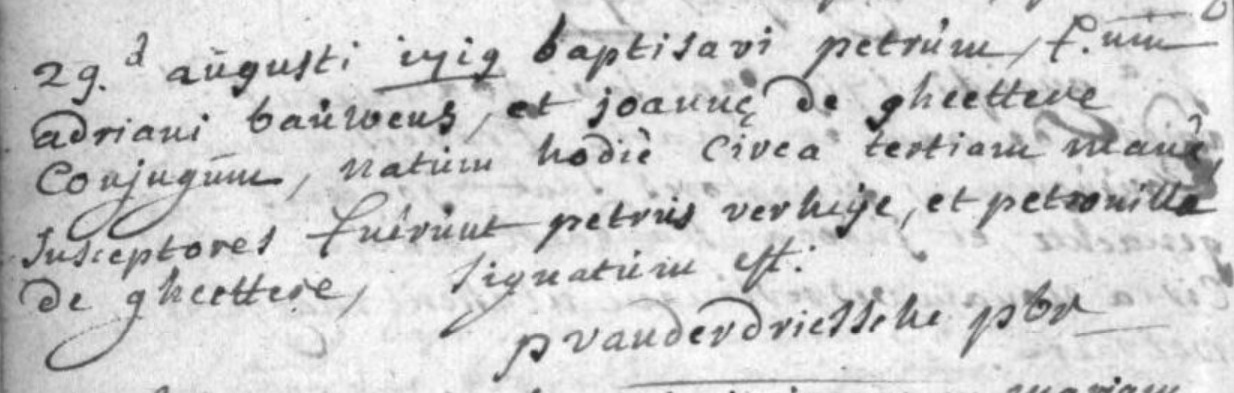 29.d aūgusti 1719 baptisavi petrúm, f.um
adriani baúwens, et joannę de gheettere
Conjugūm, natúm hodiè Circa tertiam manè,
Susceptores fuérúnt petrús verheije, et petronilla
de gheettere, signatúm est.
p vanderdriessche pbr